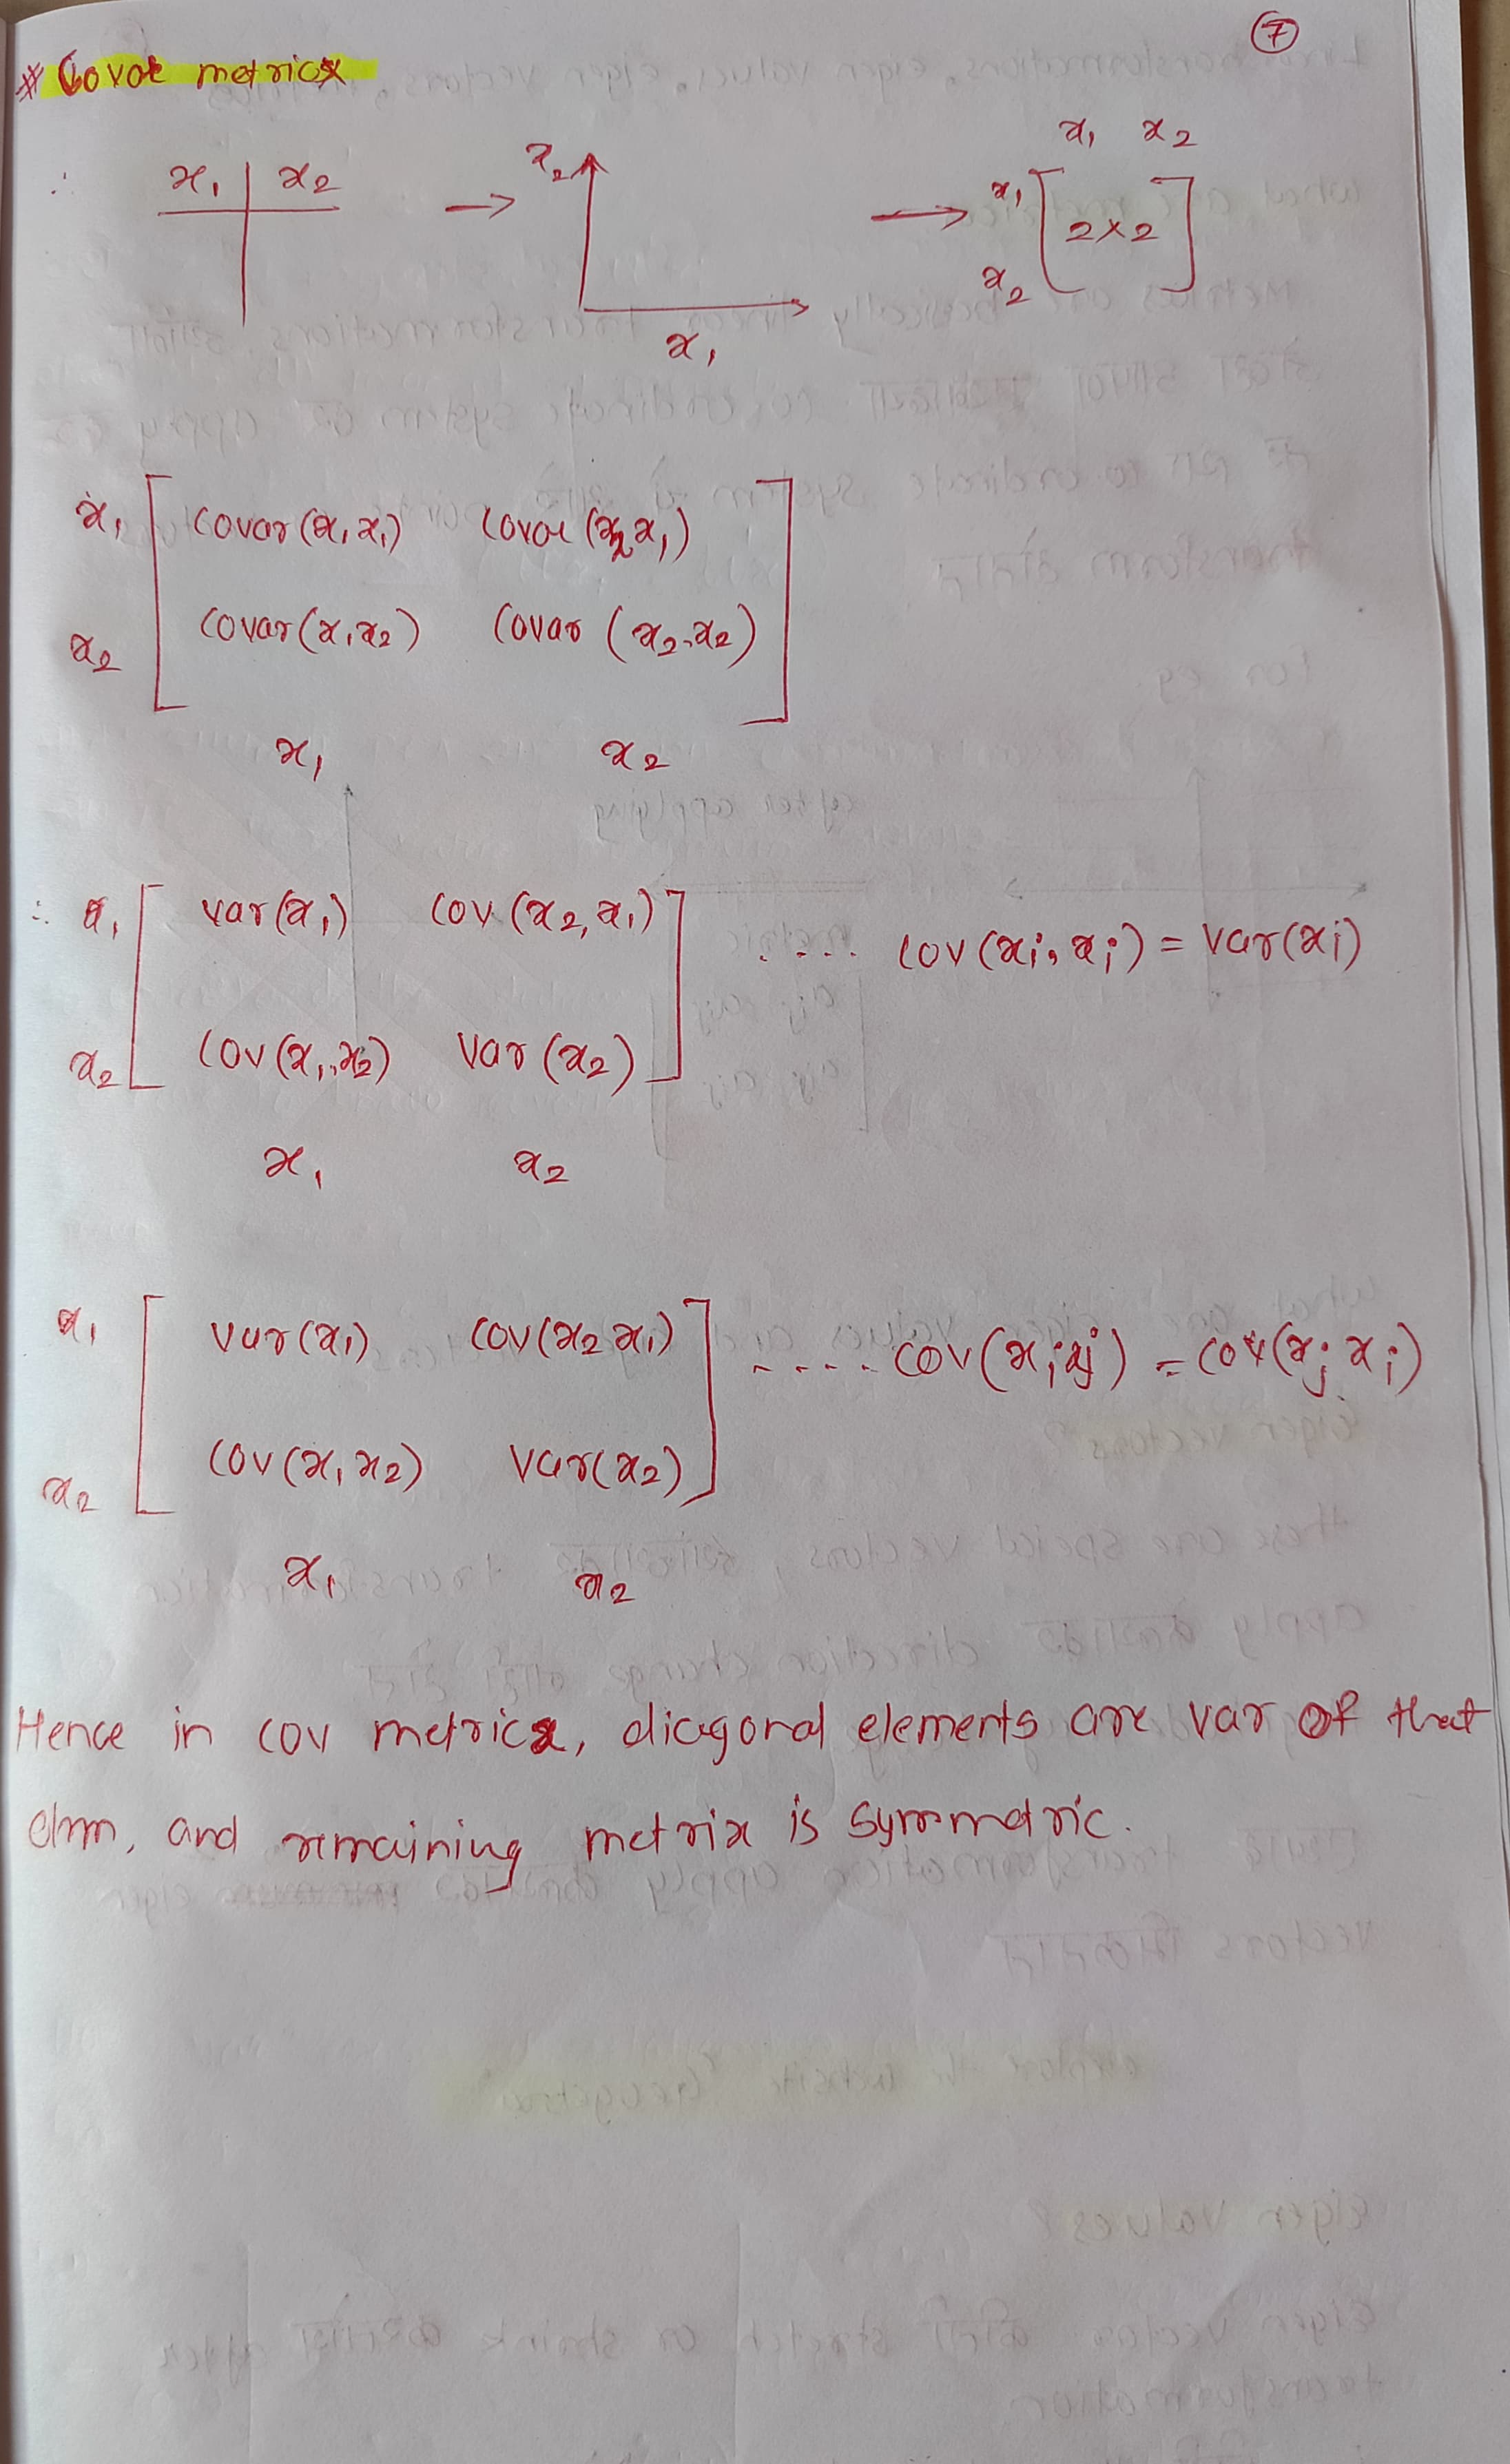 7
# Covar metricx
x1 | x2 → x2 x1 → x1 x2
x1 [ 2x2 ]
x2
x1 [ Covar(x1 x1) Covar(x2 x1)
x2 Covar(x1 x2) Covar (x2, x2) ]
x1 x2
∴ x1 [ var(x1) Cov (x2, x1) ..... Cov (xi, xi) = Var(xi)
x2 Cov (x1, x2) Var (x2) ]
x1 x2
x1 [ Var(x1) Cov(x2 x1) ..... Cov (xi xj) = Cov(xj xi)
x2 Cov(x1 x2) Var(x2) ]
x1 x2
Hence in cov metricx, diagonal elements are var of that
clmn, and remaining metrix is symmetric.